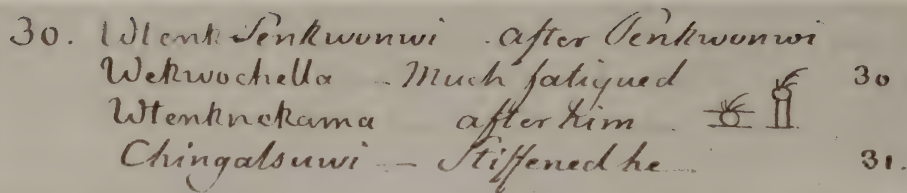 30. Wtenk Penkwonwi - after Penkwonwi
Wekwochella - Much fatigued 30
Wtenknekama after him
Chingalsuwi - Stiffened he 31.